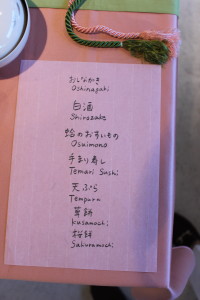 おしながき
Oshinagaki
白酒
Shirozake
蛤のおすいもの
Osuimono
手まり寿し
Temari Sushi
天ぷら
Tempura
草餅
Kusamochi
桜餅
Sakuramochi